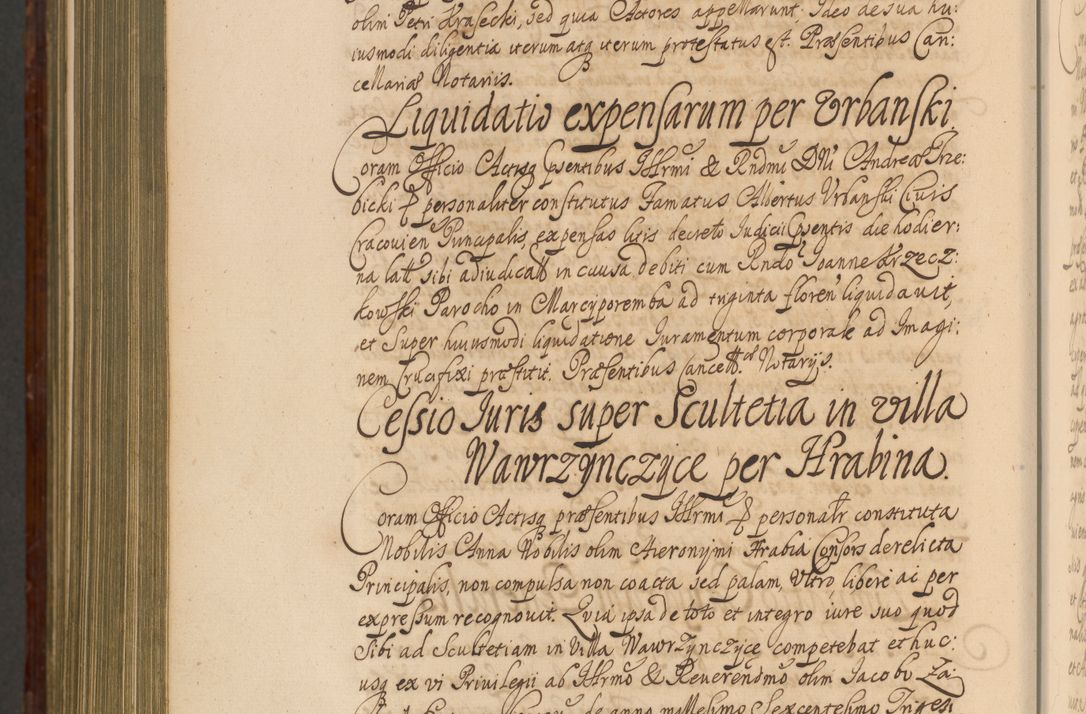 olim Petri Krasecki, sed quia Actores appellarunt. Ideo de sua hu:
iusmodi diligentia iterum atq iterum protestatus est. Præsentibus Can:
cellariæ Notariis.
Liquidatio expensarum per Urbanski.
Coram Officio Actisq psentibus Illrmi & Rndmi DNi Andreæ Trze:
bicki personaliter constitutus Famatus Albertus Urbanski Civis
Cracovien Principalis, expensas litis decreto Iudicii psentis die hodier:
na latt sibi adiudicatt in causa debiti cum Rndo Ioanne Krzecz:
kowski Parocho in Marcyporemba ad triginta floren liquidavit,
et super huiusmodi liquidatione Iuramentum corporale ad Imagi:
nem Crucifixi præstitit. Præsentibus Cancell Notarijs.
Cessio Iuris super Scultetia in villa
Wawrzynczyce per Hrabina.
Coram Officio Actisq præsentibus Illrmi personalr constituta
Nobilis Anna Nobilis olim Hieronymi Hrabia Consors derelicta
Principalis, non compulsa non coacta sed palam, ultro, libere ac per
expressum recognovit. Quia ipsa de toto et integro iure suo quod
sibi ad Scultetiam in Villa Wawrzynczyce competebat et huc:
usq ex vi Privilegii ab Illrmo & Reverendmo olim Jacobo Za:
de anno millesimo Sexcentesimo Trigesi